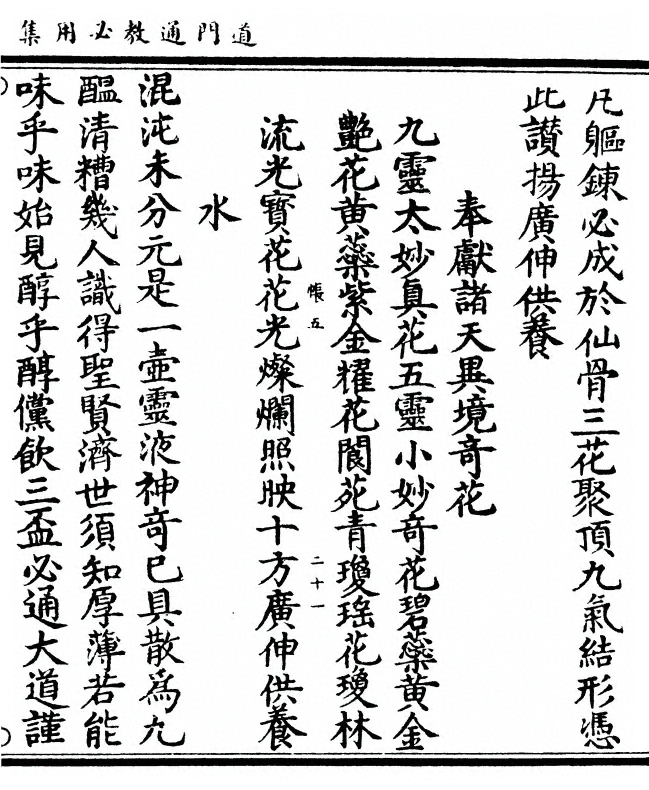 道門通教必用集
凡軀鍊必成於仙骨三花聚頂九氣結形憑
此讃揚廣伸供養
奉獻諸天異境奇花
九靈太妙真花五靈小妙奇花碧蘂黄金
艷花黄蘂紫金耀花閬苑青瓊瑤花瓊林
帳五
二十一
流光寳花花光燦爛照映十方廣伸供養
水
混沌未分元是一壺靈液神奇已具散爲九
醖清糟幾人識得聖賢濟世須知厚薄若能
味乎味始見醇乎醇儻飲三盃必通大道謹